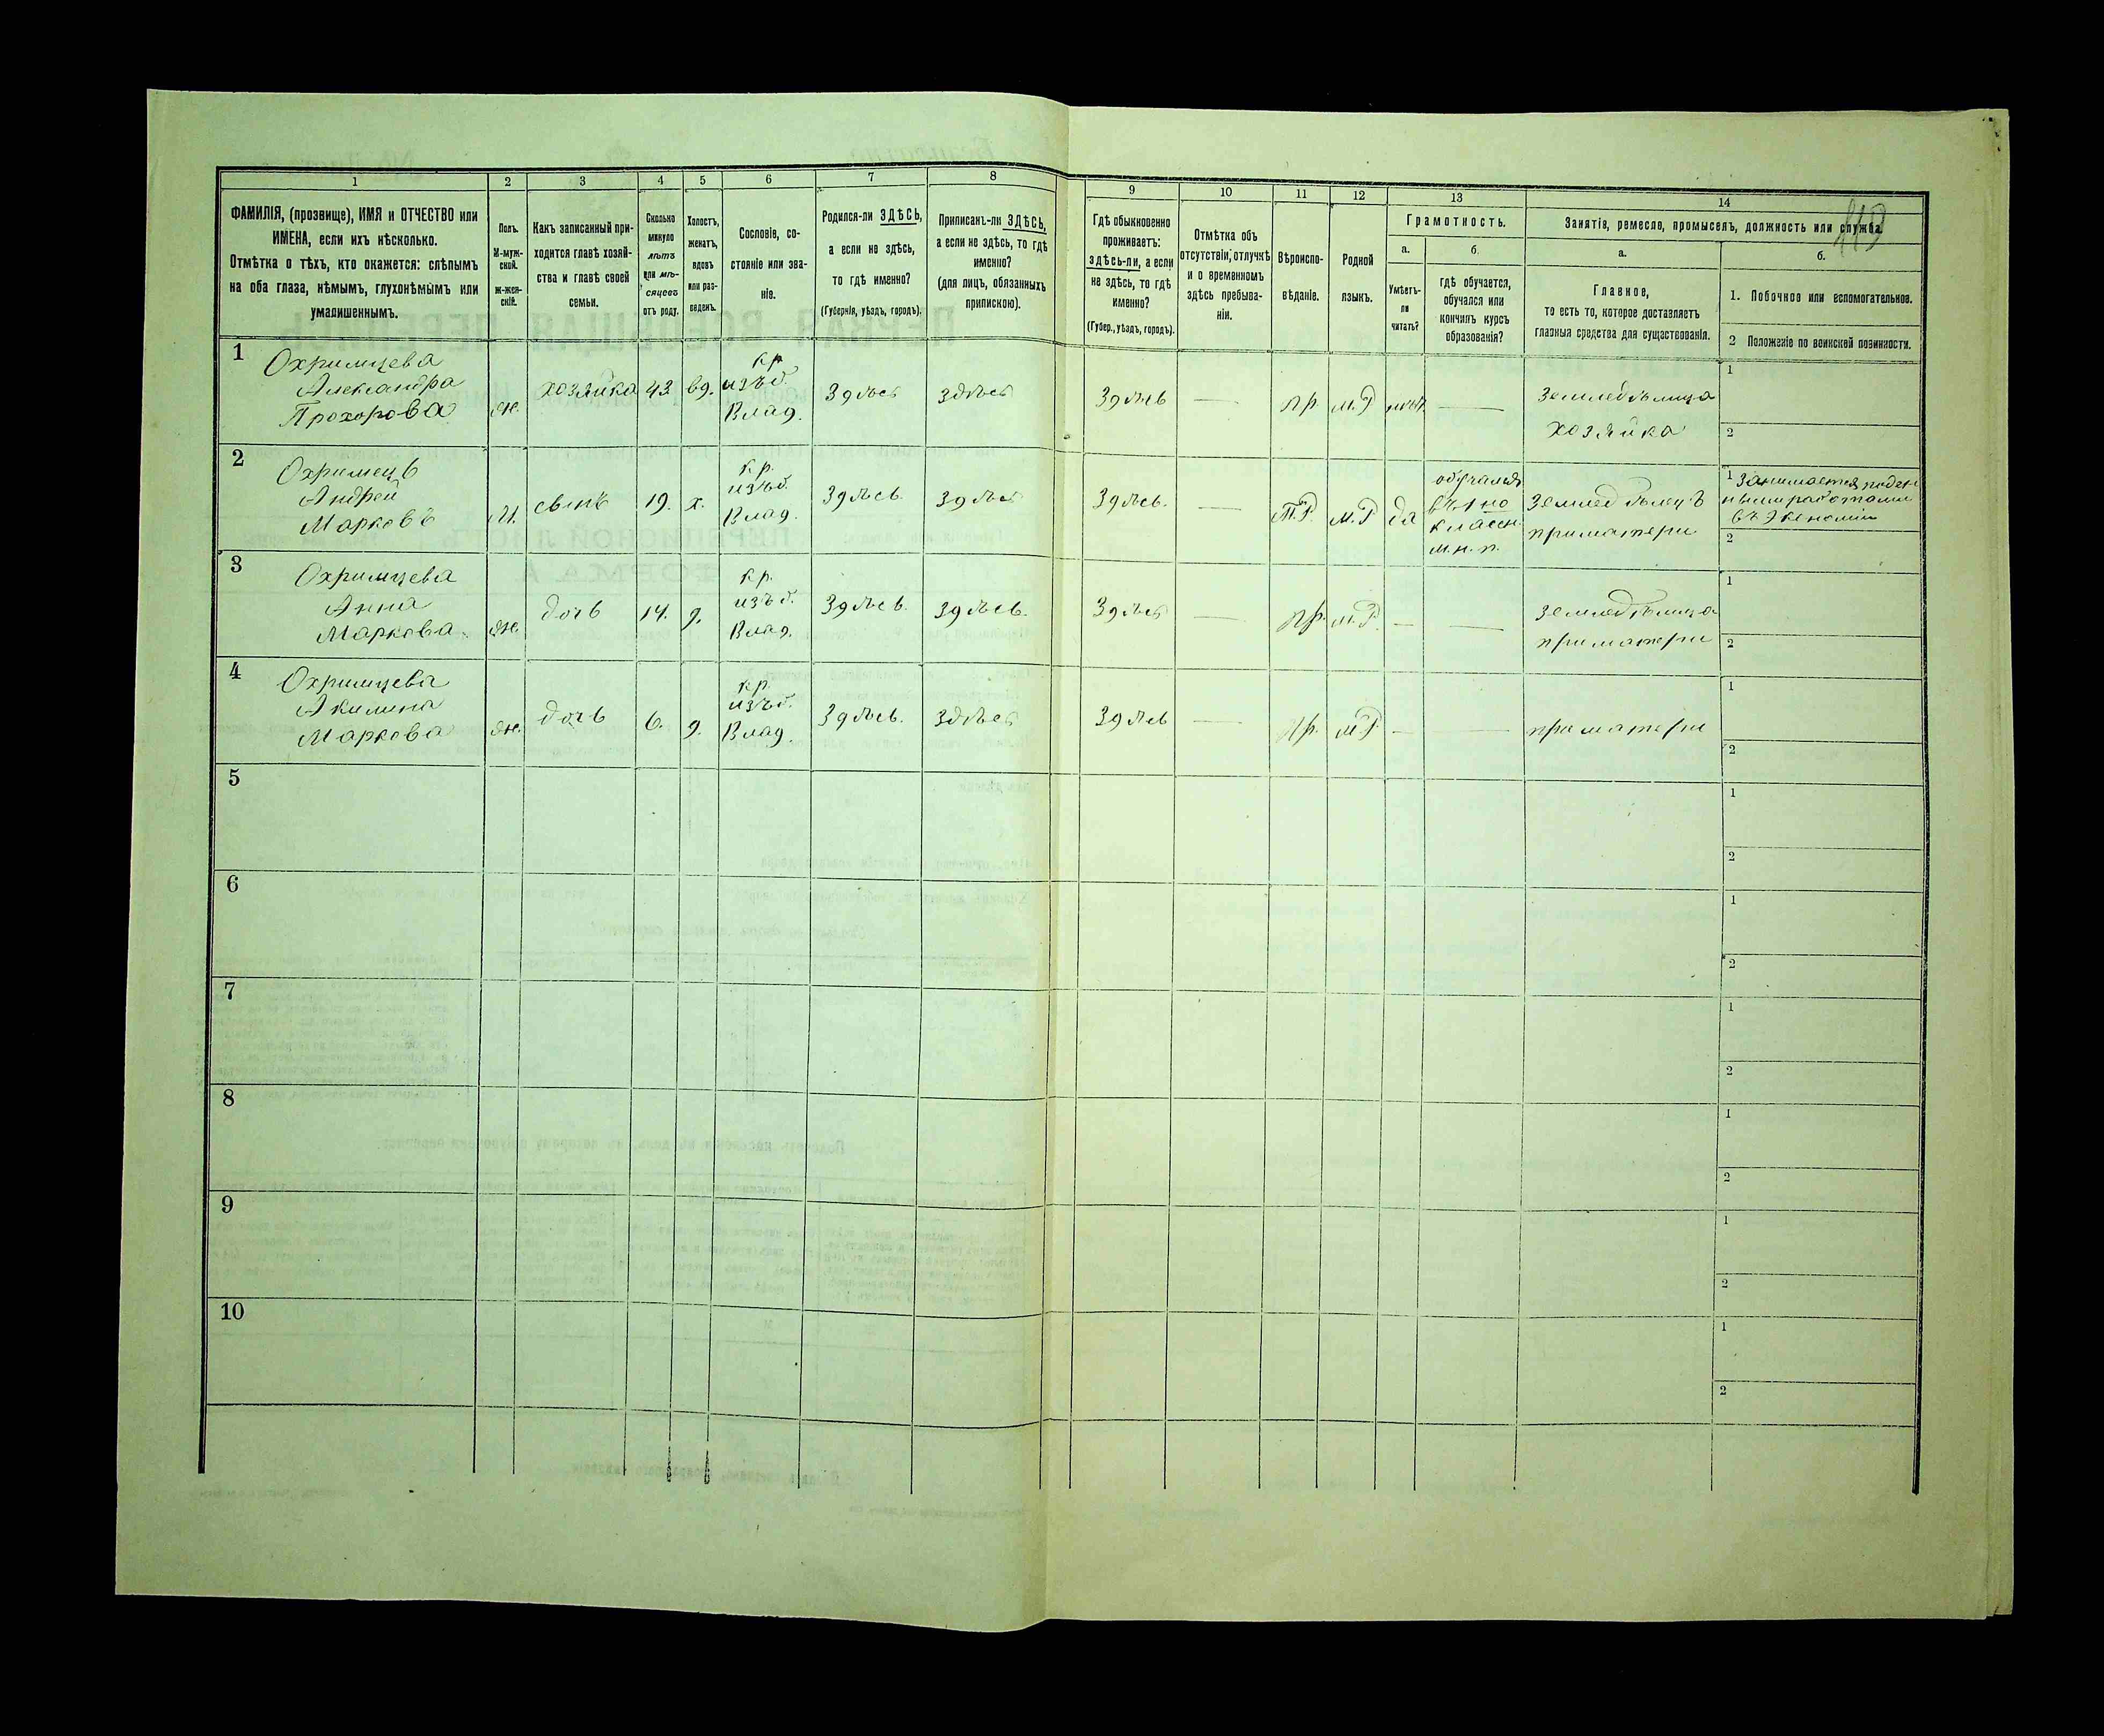 119
1 2 3 4 5 6 7 8 9 10 11 12 13 14
ФАМИЛІЯ, (прозвище), ИМЯ и ОТЧЕСТВО или
ИМЕНА, если ихъ нѣсколько.
Отмѣтка о тѣхъ, кто окажется: слѣпымъ
на оба глаза, нѣмымъ, глухонѣмымъ или
умалишеннымъ.
Полъ.
М-муж-
ской.
ж-жен-
скій.
Какъ записанный при-
ходится главѣ хозяй-
ства и главѣ своей
семьи.
Сколько
минуло
лѣтъ
или мѣ-
сяцевъ
отъ роду.
Холостъ,
женатъ,
вдовъ
или раз-
веденъ.
Сословіе, со-
стояніе или зва-
ніе.
Родился-ли ЗДѢСЬ,
а если не здѣсь,
то гдѣ именно?
(Губернія, уѣздъ, городъ).
Приписанъ-ли ЗДѢСЬ,
а если не здѣсь, то гдѣ
именно?
(для лицъ, обязанныхъ
припискою).
Гдѣ обыкновенно
проживаетъ:
здѣсь-ли, а если
не здѣсь, то гдѣ
именно?
(Губер., уѣздъ, городъ).
Отмѣтка объ
отсутствіи, отлучкѣ
и о временномъ
здѣсь пребыва-
ніи.
Вѣроиспо-
вѣданіе.
Родной
языкъ.
Грамотность.
а.
Умѣетъ-
ли
читать?
б.
гдѣ обучается,
обучался или
кончилъ курсъ
образованія?
Занятіе, ремесло, промыселъ, должность или служба.
а.
Главное,
то есть то, которое доставляетъ
главныя средства для существованія.
б.
1. Побочное или вспомогательное.
2 Положеніе по воинской повинности.
1
Охримцева
Александра
Прохорова
ж.
хозяйка
43
вд.
кр
изъ б.
Влад.
Здѣсь
здѣсь
Здѣсь
—
пр.
м.Р
нѣт
—
Земледѣлица
хозяйка
1
2
2
Охримецъ
Андрей
Марковъ
М.
сынъ
19.
х.
кр.
изъ б.
Влад.
Здѣсь.
Здѣсь
Здѣсь.
—
П.Р.
М.Р
да
обучался
въ 1 но
классн.
м. н. п.
Земледѣлецъ
при матери
1 Занимается поден
ными работами
въ Экономіи
2
3
Охримцева
Анна
Маркова.
ж.
дочь
14.
д.
кр.
изъ б.
Влад.
Здѣсь.
Здѣсь.
Здѣсь
—
пр.
м.Р.
—
—
Земледѣлица
при матери
1
2
4
Охримцева
Акилина
Маркова
ж.
дочь
6.
д.
кр.
изъ б.
Влад.
Здѣсь.
Здѣсь
Здѣсь
—
пр.
м.Р
—
—
при матери
1
2
5
1
2
6
1
2
7
1
2
8
1
2
9
1
2
10
1
2